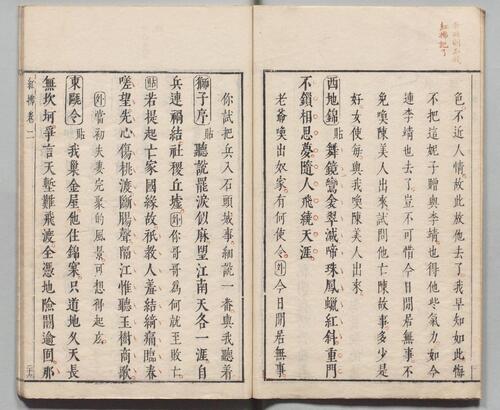 色不近人情故此放他去了我早知如此悔
不把這妮子贈與李靖也得他些氣力如今
連李靖也去了豈不可惜今日閒居無事不
免喚陳美人出來試問他亡陳故事多少是
好女使每與我喚陳美人出來
西地錦貼舞鏡鸞金翠減啼珠鳳蠟紅斜重門
不鎖相思夢隨人飛繞天涯
老爺喚出奴家有何使令外今日閒居無事
你試把兵入石頭城事細說一番與我聽着
獅子序貼聽說罷淚似麻望江南天各一涯自
兵連禍結社稷丘墟外你哥哥為何就王敗亡
貼若提起亡家國緣故祇教人羞結綺痛臨春
嗟望先心傷桃渡斷腸聲隔江惟聽玉樹商歌
外當初夫妻完聚的風景可想得起麽
東甌令貼我巢金屋他住錦窠只道地久天長
無坎坷爭言天塹難飛渡全憑地險關逾固那
紅拂卷二
二十六
紅拂記了